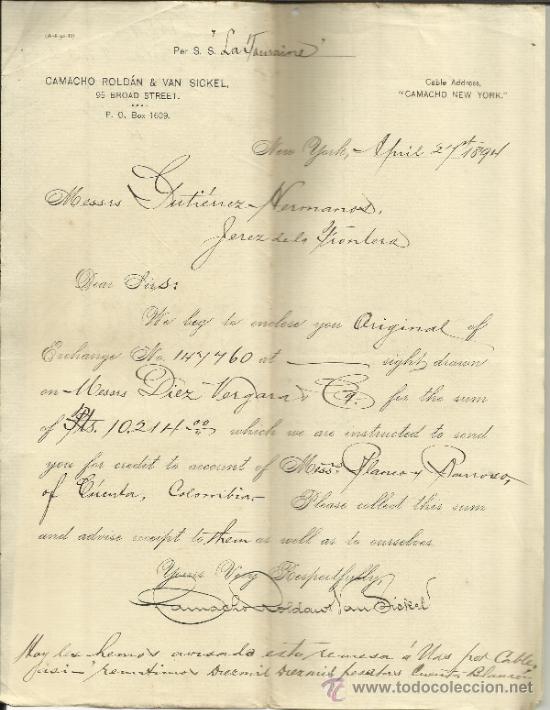 Per S. S. "La Touraine"
CAMACHO ROLDÁN & VAN SICKEL,
95 BROAD STREET.
P. O. Box 1609.
Cable Address,
"CAMACHO NEW YORK."
New York, April 27th 1894
Messrs Gutiérrez Hermanos,
Jerez de la Frontera
Dear Sirs:
We beg to enclose you Original of
Exchange No. 147760 at sight drawn
on Messrs Diez Vergara & Ca. for the sum
of Pts. 10.214 00/ which we are instructed to send
you for credit to account of Messrs Blanco y Barroso,
of Cúcuta, Colombia. Please collect this sum
and advise receipt to them as well as to ourselves.
Yours Very Respectfully,
Camacho Roldan Van Sickel
Hoy les hemos avisado esta remesa á Uds por Cable,
así remitimos Diezmil Diezmil pesetas Cuenta
todocoleccion
www.todocoleccion.net